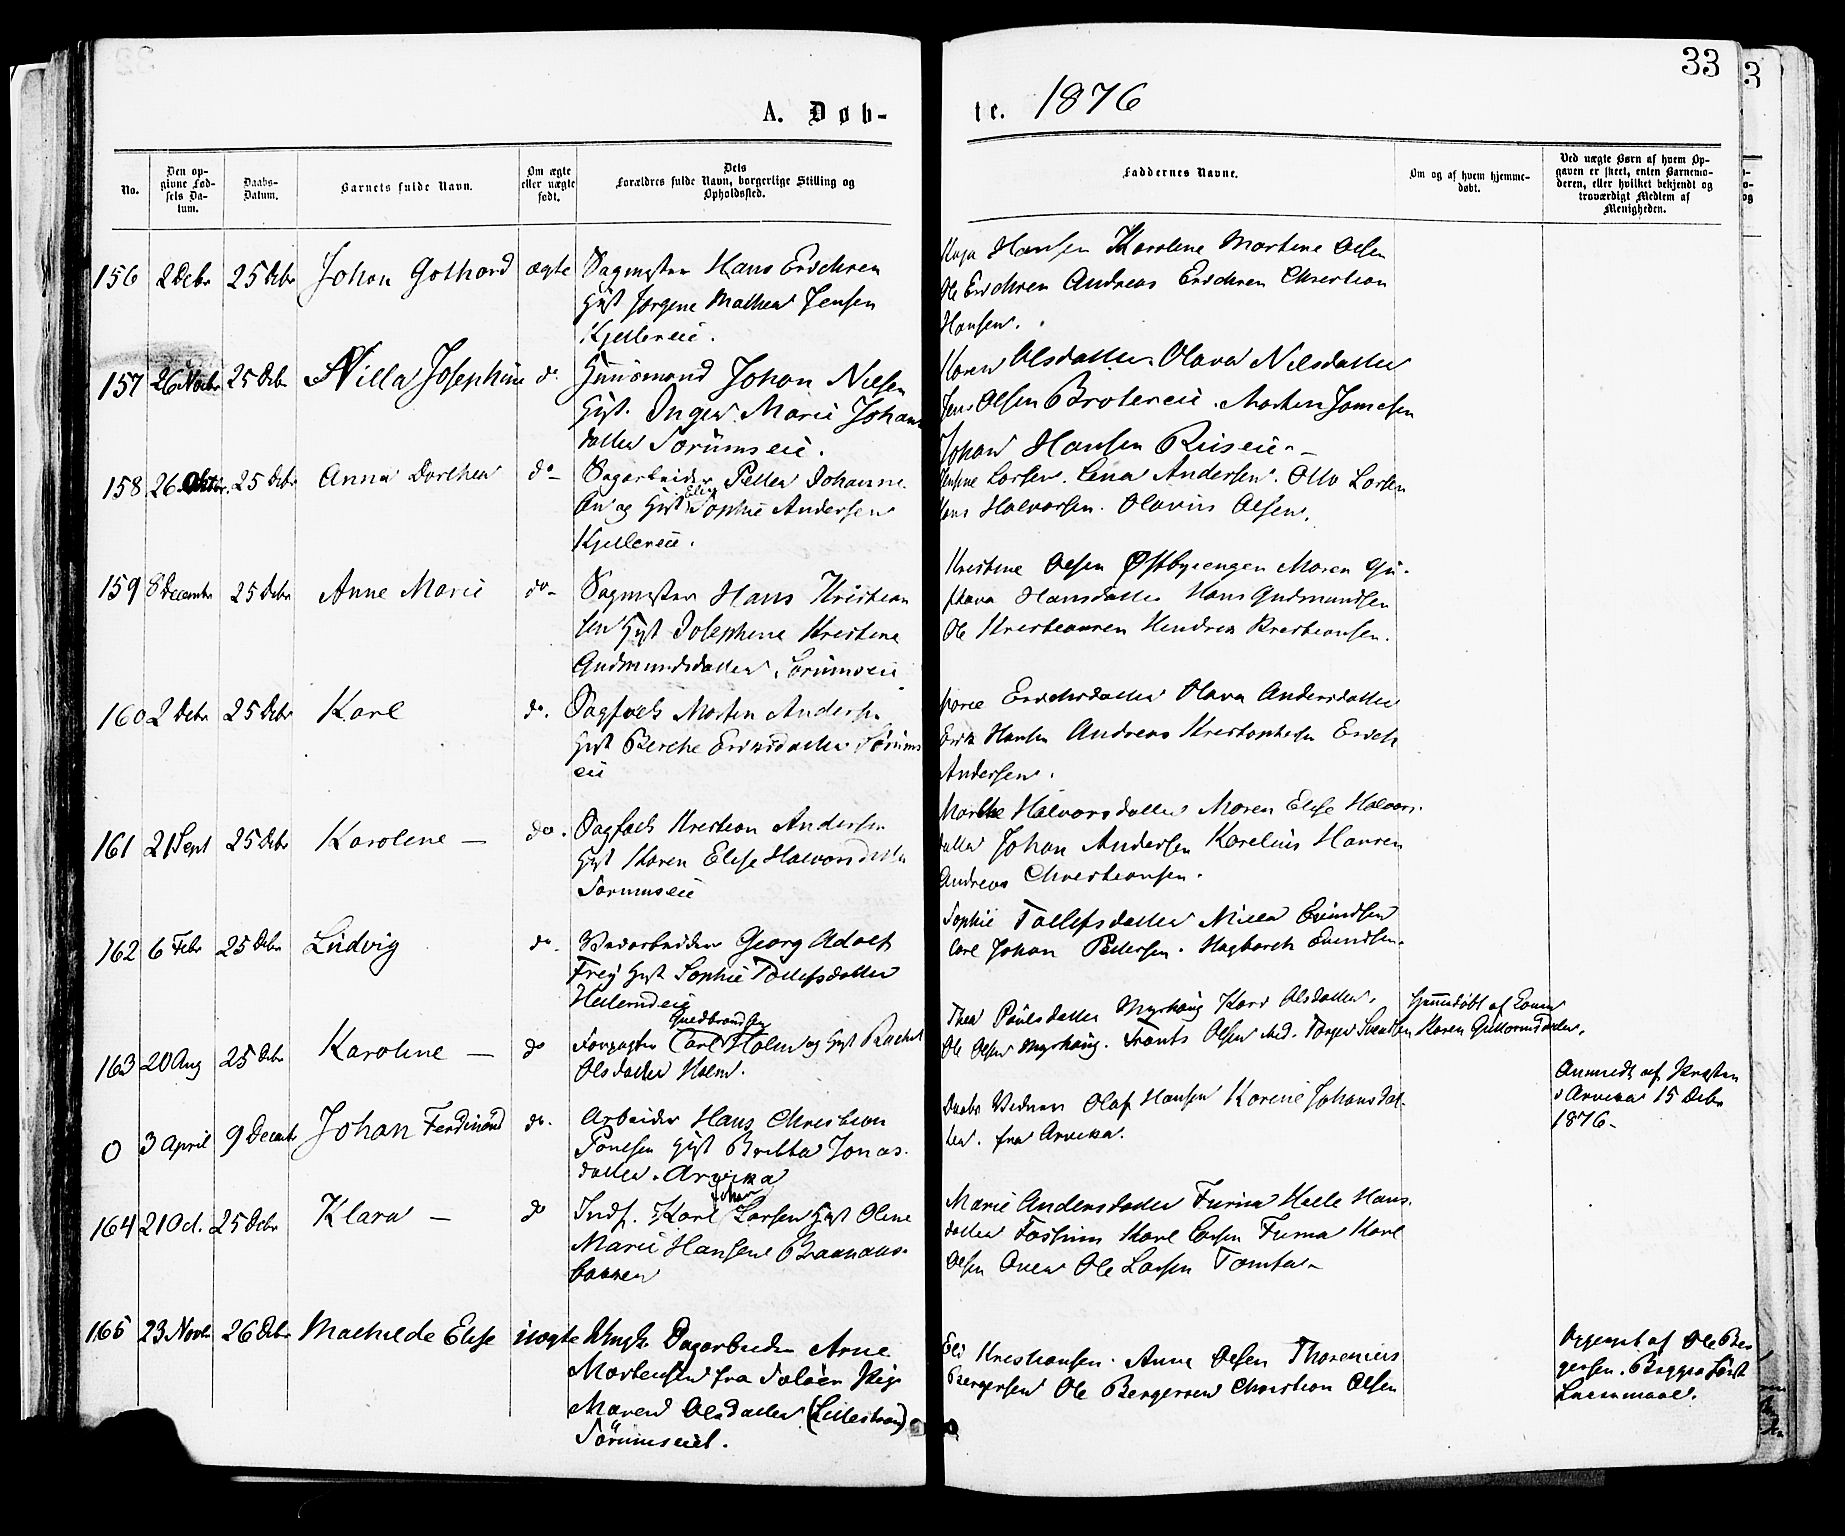 33
A. Døb-
te. 1876
No.
Den op-
givne Fød-
sels Da-
tum.
Daabs-
Datum.
Barnets fulde Navn.
Om ægte
eller uægte
født.
Dets
Forældres fulde Navn, borgerlige Stilling og
Opholdssted.
Faddernes Navne.
Om og af hvem hjemme-
døbt.
Ved uægte Børn af hvem Op-
gaven er skeet, enten Barnemo-
deren, eller hvilket bekjendt og
troværdigt Medlem af
Menigheden.
156 2 Debr 25 Debr Johan Gothard ægte
Sagmester Hans Erichsen
Gift Jørgine Mathea Jensen
Kjellereie.
Hansen Karoline Martine Olsen
Ole Erichsen Andreas Erichsen Christian
Hansen.
157 26 Novbr 25 Debr Nilla Josephine do.
Huusmand Johan Nilsen
Gift. Inger Marie Johans
datter Sørumseie.
Karen Olsdatter Olava Nilsdatter
Jens Olsen Brotereie. Morten Jonesen
Johan Hansen Riiseie -
158 26 Oktbr. 25 Debr Anna Dorthea do -
Sagarbeider Petter Johanne
sen og Gift Elise Sophie Andersen
Kjellereie.
Larsen. Lina Andersen. Otto Larsen
Hans Halvorsen. Olavus Olsen.
159 8 Decembr 25 Debr Anne Marie do -
Sagmester Hans Kristian
sen Gift Josephine Kristine
Gudmundsdatter Sørumseie
Kristine Olsen Østbyeengen Maren Gu-
stava Hansdatter Hans Gudmundsen
Ole Kristiansen Hendrik Kristiansen.
160 2 Debr 25 Debr Karl do.
Sagfork Morten Andersen
Gift Berthe Erichsdatter Sørums
eie
Marie Erichsdatter Olava Andersdatter
Erik Hansen Andreas Kristophersen Erich
Andersen.
161 21 Sept 25 Debr Karoline - do.
Sagfork Kristian Andersen
Gift Karen Elise Halvorsdatter
Sørumseie
Marthe Halvorsdatter Maren Elise Halvors-
datter Johan Andersen Karelius Hansen
Andreas Christiansen.
162 6 Febr 25 Debr Ludvig do -
Georg Adolf
Frey Gift Sophie Tollefsdatter
Sophie Tollefsdatter Milla Evindsen
Carl Johan Pettersen. Hagbarth Evendsen.
163 20 Aug 25 Debr Karoline - do
Guldbrandsen
Forpagter Carl Holm og Gift Rachel
Olsdatter Holm.
Thea Paulsdatter Myrhaug Kari Olsdatter.
Ole Olsen Myrhaug. Frants Olsen Torger Svendsen
Hjemmedøbt af
Karen Guttormsdatter.
0 3 April 9 Decembr Johan Ferdinand do.
Arbeider Hans Christian
Poulsen Gift Britta Jonas-
datter. Arvika
Daabs Vidner Olaf Hansen Karine Johansdat-
ter. fra Arvika.
Anmeldt af Præsten
i Arvika 15 Debr
1876 -
164 21 Oct. 25 Debr Klara - do
Johan
Inds. Karl Larsen Gift Oline
Marie Hansen
bakken
Marie Andersdatter Furua Helle Hans-
datter Fossum Karl Larsen Furua Karl
Olsen Ole Larsen Tomter -
165 23 Novbr 26 Debr Mathilde Elise uægte
Ungk. Dagarbeider Arne
Mortensen fra Soløer Pige
Maren Olsdatter (Lillestrøm)
Sørumseiet.
Kristiansen. Anne Olsen Thorenius
Bergersen Ole Bergersen Christian Olsen
Opgivet af Ole Ber
gersen. Begges første
Leiermaal.